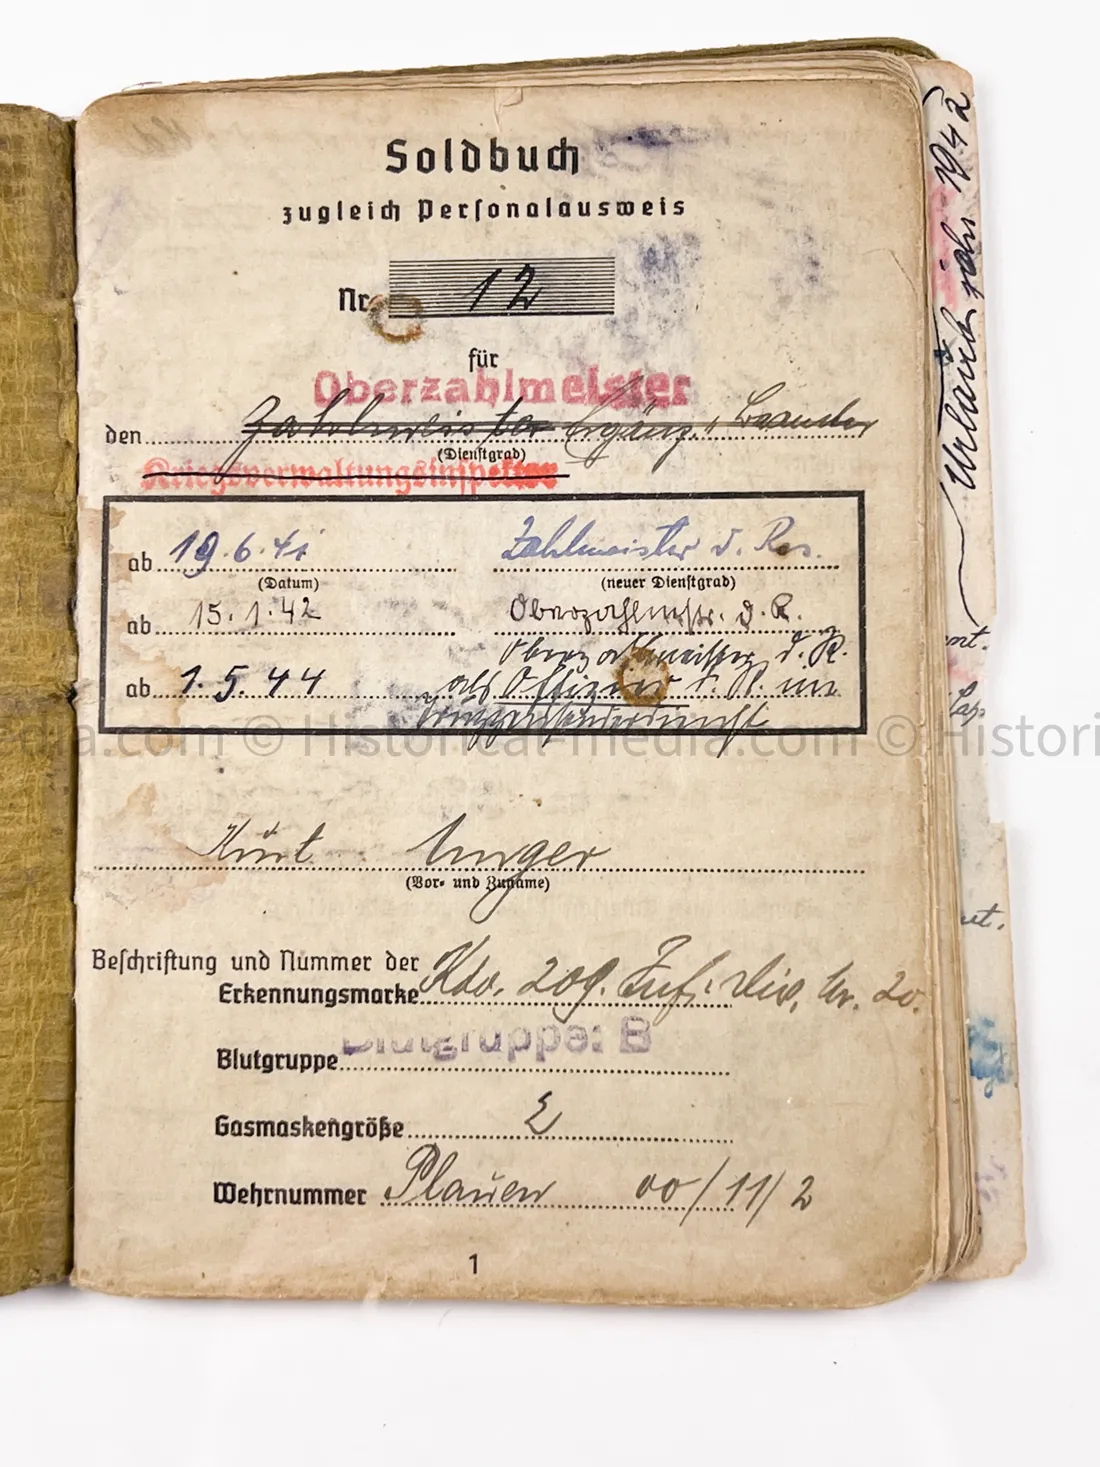 Soldbuch
zugleich Personalausweis
Nr. 12
für
Oberzahlmeister
den Zahlmeister Ergänz. Beamter
(Dienstgrad)
Kriegsverwaltungsinspektor
ab 19.6.41 Zahlmeister d. Res.
(Datum) (neuer Dienstgrad)
ab 15.1.42 Oberzahlmstr. d. R.
Oberzahlmeister d. R.
ab 1.5.44 als Offizier d. R. im
Truppensonderdienst
Kurt Unger
(Vor- und Zuname)
Beschriftung und Nummer der
Erkennungsmarke Kdo. 209. Inf. Div. Nr. 20.
Blutgruppe Blutgruppe: B
Gasmaskengröße 2
Wehrnummer Plauen 00/11/2
1
Urlaub 1942
nt.
media.com © Historical-media.com © Histori